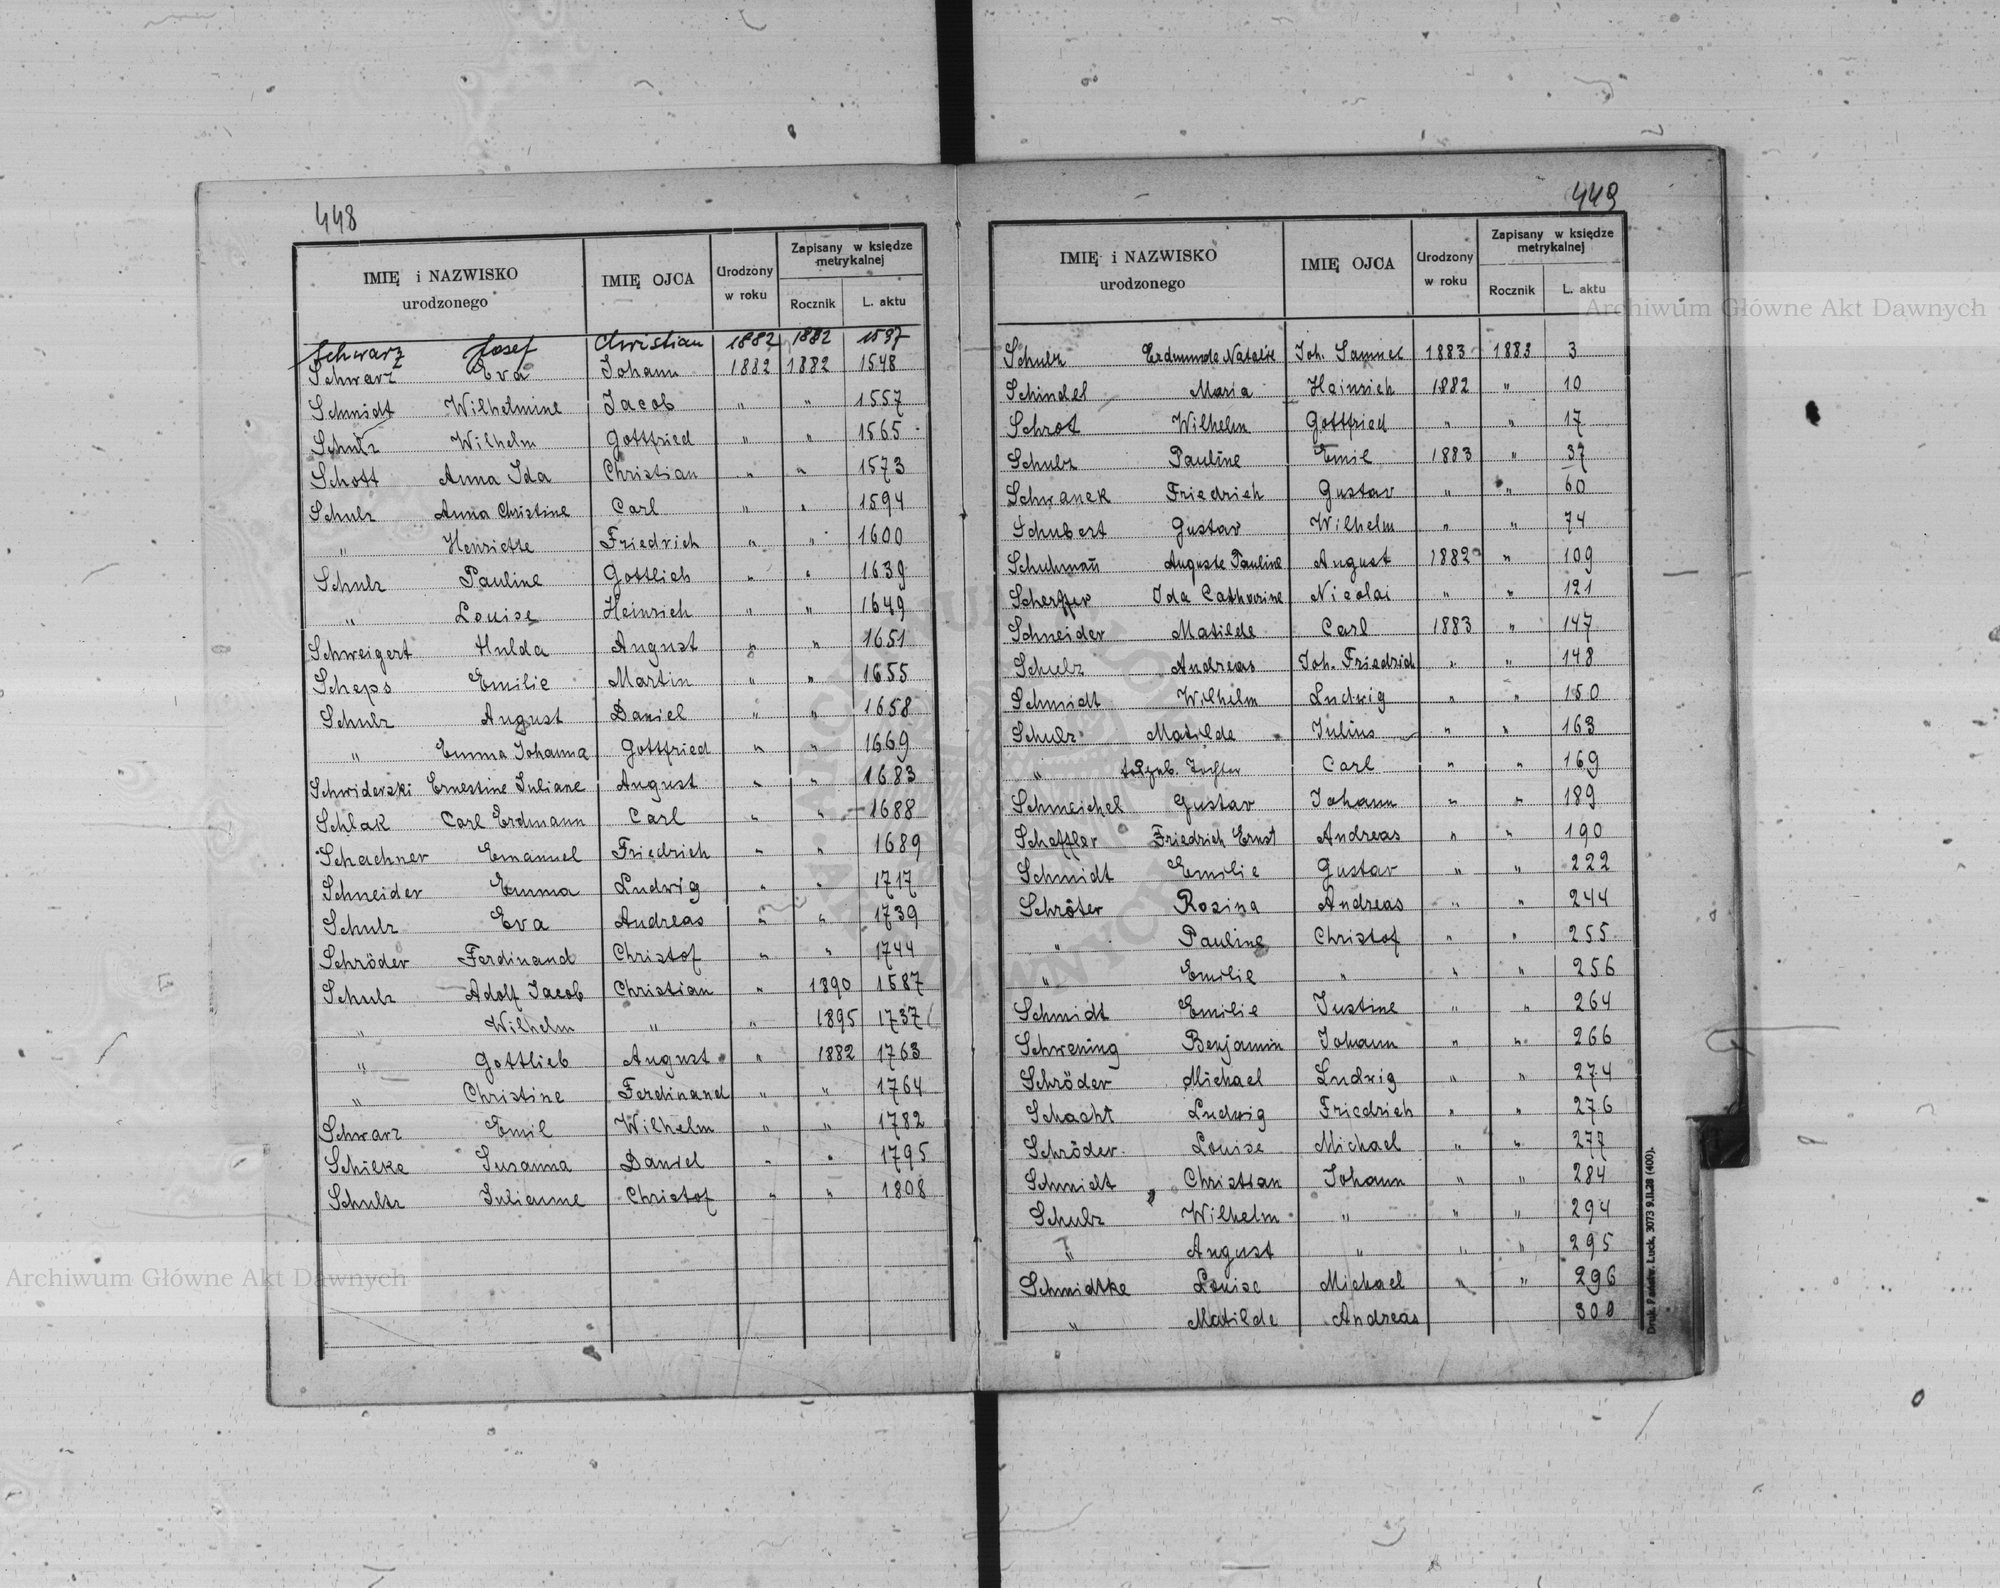 448
IMIĘ i NAZWISKO urodzonego IMIĘ OJCA Urodzony w roku Zapisany w księdze metrykalnej Rocznik L. aktu
Schwarz Josef Christian 1882 1882 1537
Schwarz Eva Johann 1882 1882 1548
Schmidt Wilhelmine Jacob " " 1557
Schulz Wilhelm Gottfried " " 1565
Schott Anna Ida Christian " " 1573
Schulz Anna Christine Carl " " 1594
" Henriette Friedrich " " 1600
Schulz Pauline Gottlieb " " 1639
" Louise Heinrich " " 1649
Schweigert Hulda August " " 1651
Scheps Emilie Martin " " 1655
Schulz August Daniel " " 1658
" Emma Johanna Gottfried " " 1669
Schwiderski Ernestine Juliane August " " 1683
Schlak Carl Erdmann Carl " " 1688
Schachner Emanuel Friedrich " " 1689
Schneider Emma Ludwig " " 1717
Schulz Eva Andreas " " 1739
Schröder Ferdinand Christof " " 1744
Schulz Adolf Jacob Christian " 1890 1587
" Wilhelm " " 1895 1737
" Gottlieb August " 1882 1763
" Christine Ferdinand " " 1764
Schwarz Emil Wilhelm " " 1782
Schilke Susanna Daniel " " 1795
Schultz Julianne Christof " " 1808
449
IMIĘ i NAZWISKO urodzonego IMIĘ OJCA Urodzony w roku Zapisany w księdze metrykalnej Rocznik L. aktu
Schulz Erdmunde Natalie Joh. Samuel 1883 1883 3
Schindel Maria Heinrich 1882 " 10
Schrot Wilhelm Gottfried " " 17
Schulz Pauline Emil 1883 " 37
Schwanek Friedrich Gustav " " 60
Schubert Gustav Wilhelm " " 74
Schuhmañ Auguste Pauline August 1882 " 109
Scherffer Ida Catharine Nicolai " " 121
Schneider Matilde Carl 1883 " 147
Schulz Andreas Joh. Friedrich " " 148
Schmidt Wilhelm Ludwig " " 150
Schulz Matilde Julius " " 163
" Tochter Carl " " 169
Schmeichel Gustav Johann " " 189
Scheffler Friedrich Ernst Andreas " " 190
Schmidt Emilie Gustav " " 222
Schröter Rosina Andreas " " 244
" Pauline Christof " " 255
" Emilie " " " 256
Schmidt Emilie Justine " " 264
Schwening Benjamin Johann " " 266
Schröder Michael Ludwig " " 274
Schacht Ludwig Friedrich " " 276
Schröder Louise Michael " " 277
Schmidt Christian Johann " " 284
Schulz Wilhelm " " " 294
" August " " " 295
Schmidtke Louise Michael " " 296
" Matilde Andreas 300
Druk. Państw. Łuck, 3073 9.II.28 (400).
Archiwum Główne Akt Dawnych
Archiwum Główne Akt Dawnych